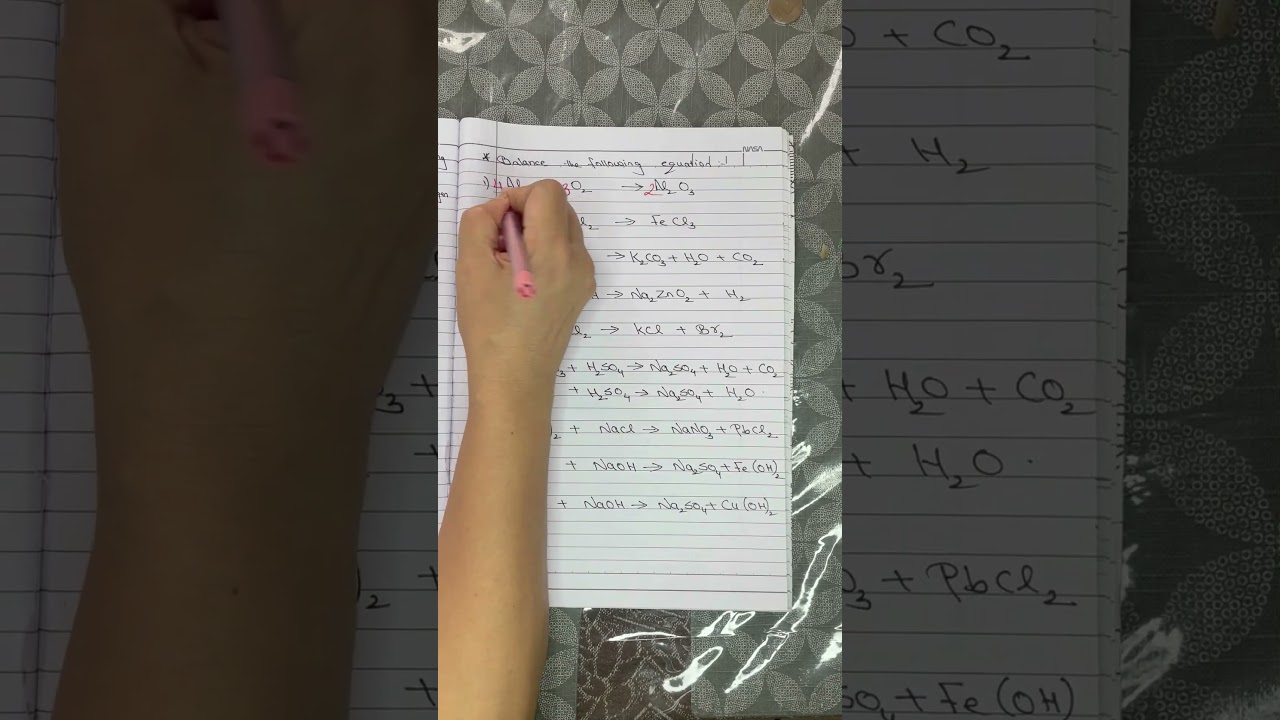 * Balance the following equation :-
1) 4Al 3O₂ → 2Al₂O₃
l₂ → FeCl₃
→ K₂CO₃ + H₂O + CO₂
→ Na₂ZnO₂ + H₂
l₂ → KCl + Br₂
₃ + H₂SO₄ → Na₂SO₄ + H₂O + CO₂
+ H₂SO₄ → Na₂SO₄ + H₂O.
)₂ + NaCl → NaNO₃ + PbCl₂
+ NaOH → Na₂SO₄ + Fe(OH)₂
+ NaOH → Na₂SO₄ + Cu(OH)₂